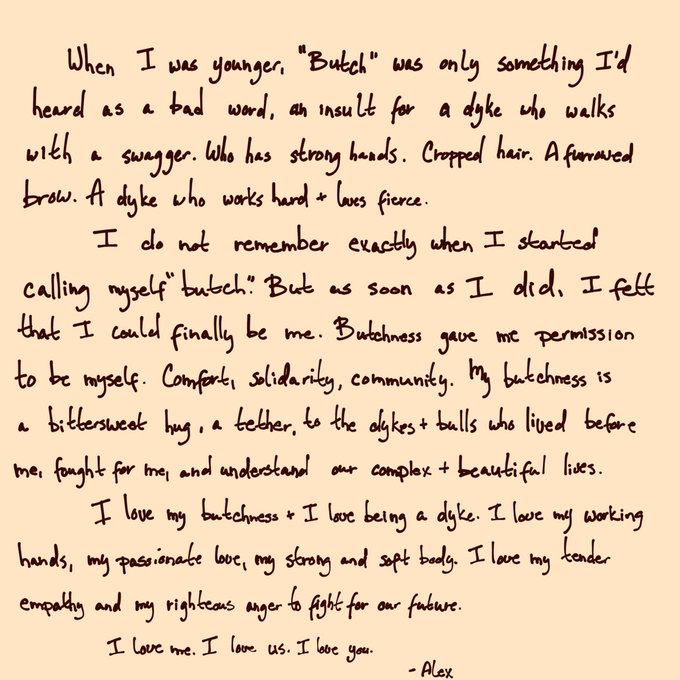 When I was younger, "Butch" was only something I'd
heard as a bad word, an insult for a dyke who walks
with a swagger. Who has strong hands. Cropped hair. A furrowed
brow. A dyke who works hard + loves fierce.
I do not remember exactly when I started
calling myself "butch". But as soon as I did, I felt
that I could finally be me. Butchness gave me permission
to be myself. Comfort, solidarity, community. My butchness is
a bittersweet hug, a tether, to the dykes + bulls who lived before
me, fought for me, and understand our complex + beautiful lives.
I love my butchness + I love being a dyke. I love my working
hands, my passionate love, my strong and soft body. I love my tender
empathy and my righteous anger to fight for our future.
I love me. I love us. I love you.
- Alex